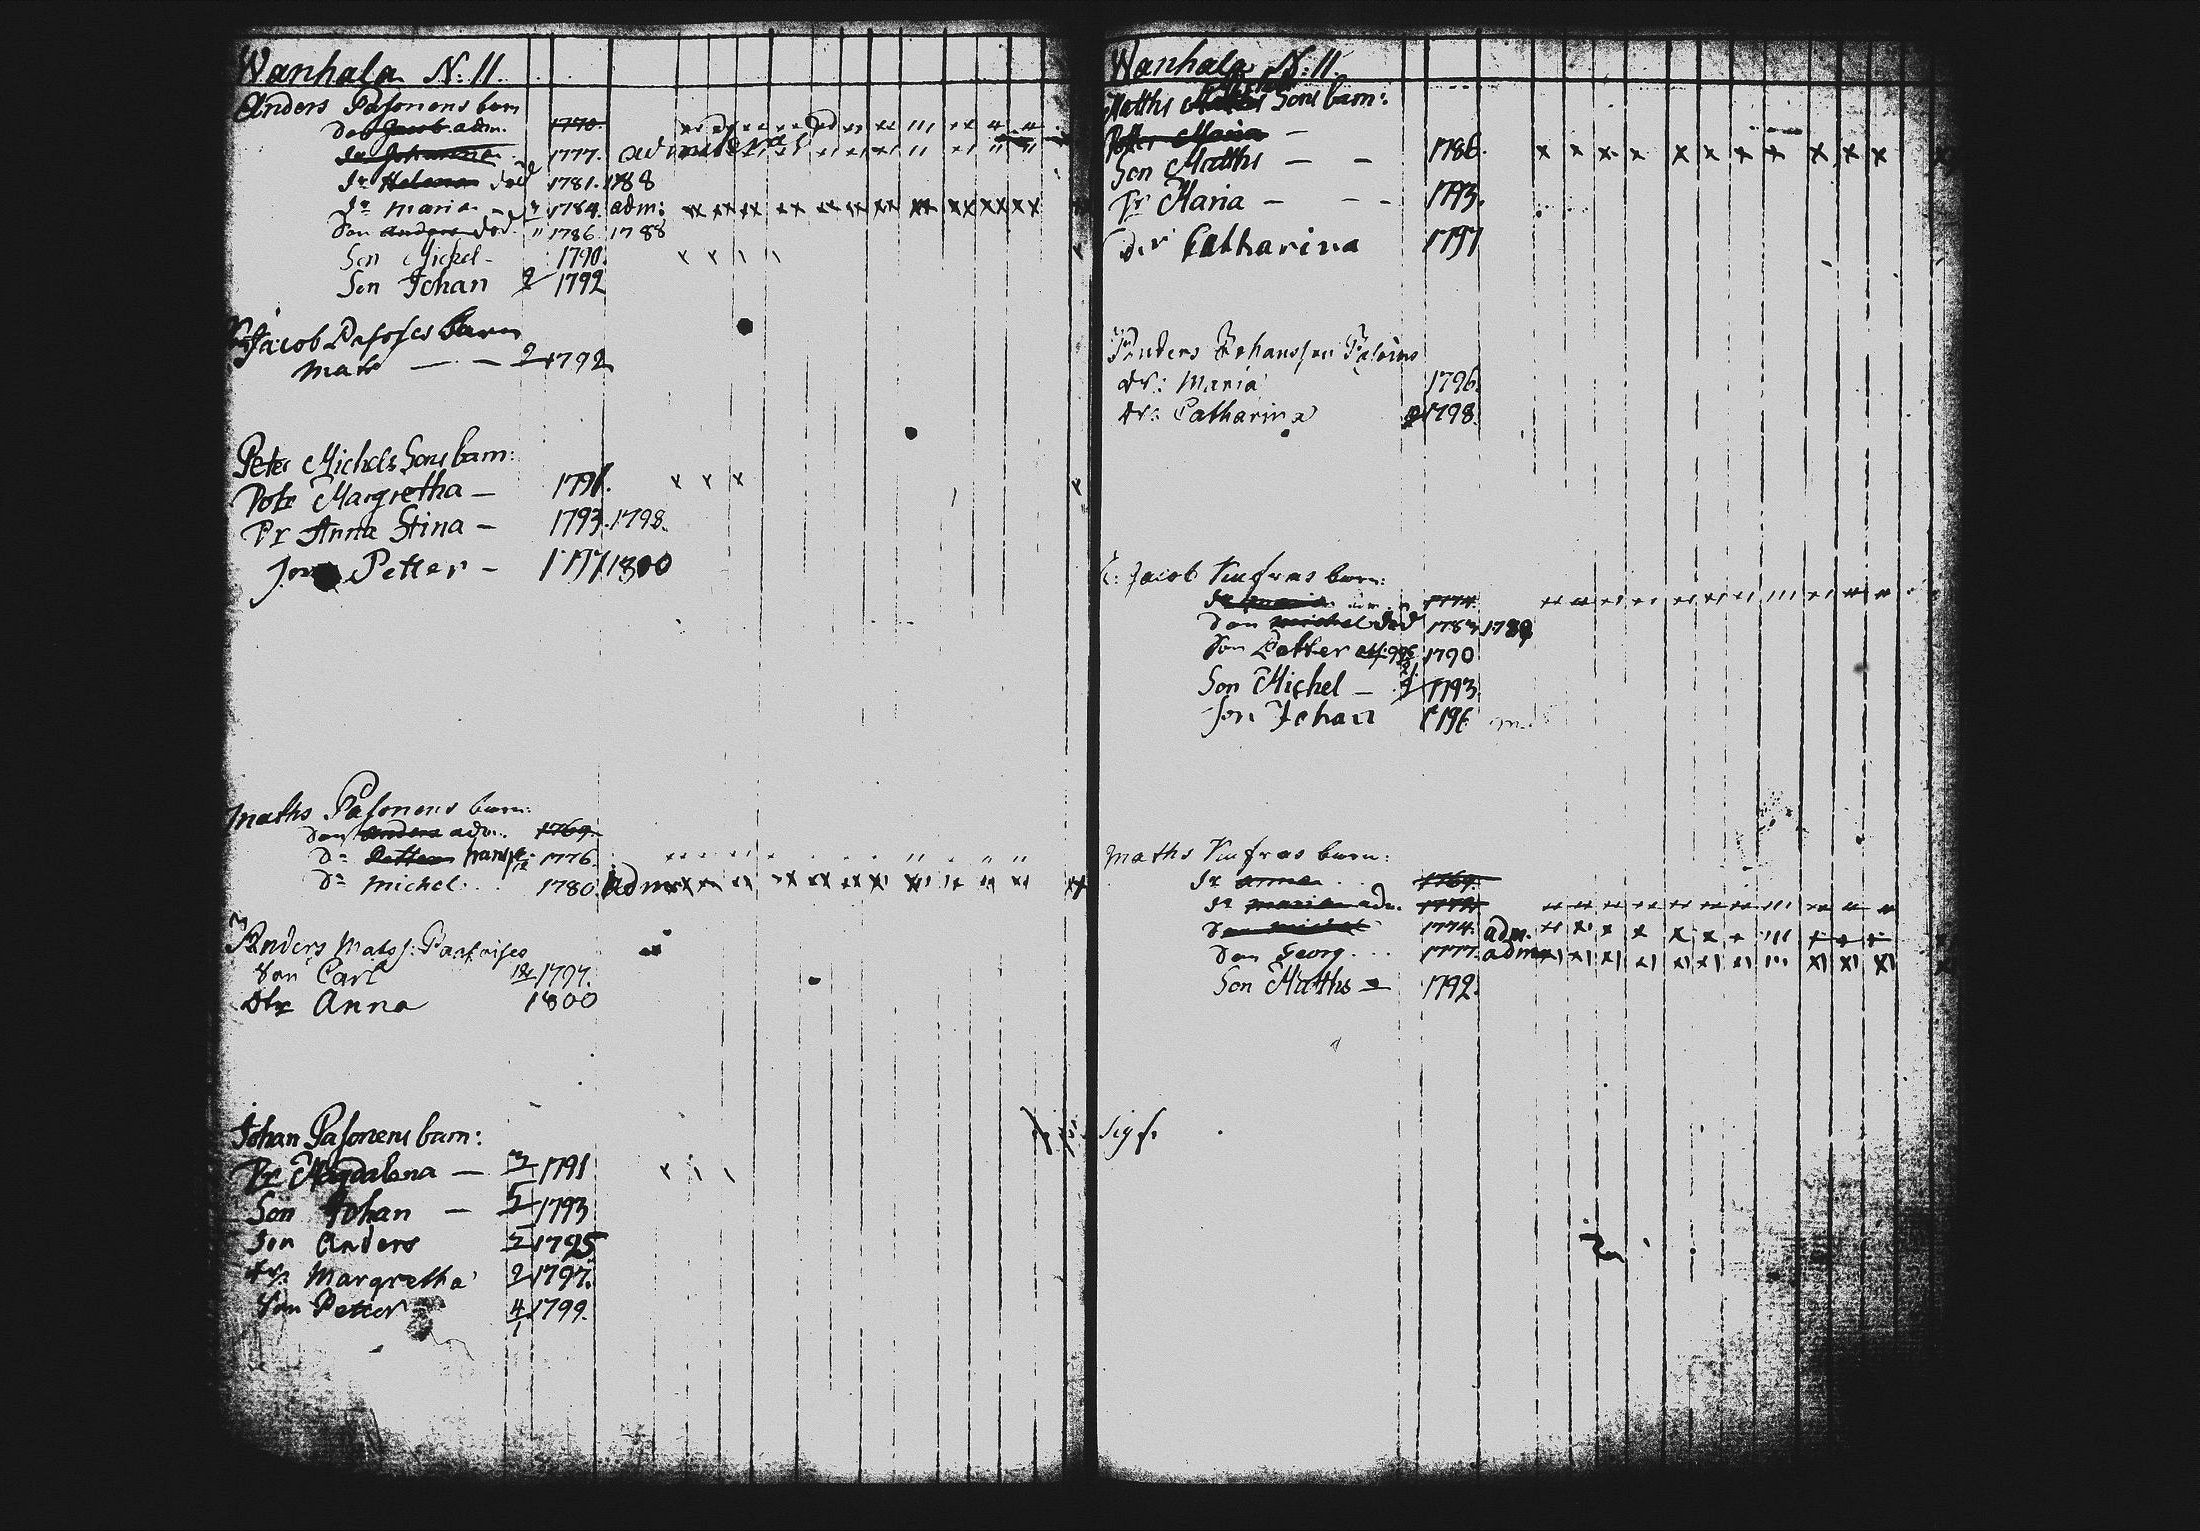 Wanhala N:11.
Anders Pasonens barn
Don Jacob adm. 1770.
Dr Johanna 1777. admitterad
Dr Helena död 1781. 1788
Dr Maria 1784. adm:
Son Anders död 1786. 1788
Son Michel - 1790.
Son Johan 2 1792
Jacob Pasoses barn
Mats — — 2 1792
Peter Michels Sons barn:
Dotr Margretha — 1791.
Dr Anna Stina — 1793. 1798.
Son Petter — 1797 1800
Maths Pasonens barn:
Don Anders adm. 1769.
Dn Petter 1776.
Dn Michel 1780. adm
Anders Matss:
Son Carl 1797.
Dtr Anna 1800
Johan Pasonens barn:
Dr Magdalena — 3 1791
Son Johan — 5 1793
Son Anders 1795
dr: Margretha 2 1797.
Son Petter 4/1 1799.
Wanhala N:11.
Maths Sons barn:
Dotter Maria —
Son Matths — — 1786.
Dr Maria — — 1793.
Der Catharina 1797
Anders Johansson
dr: Maria 1796.
dr: Catharina 1798.
Jacob barn:
Dr Maria 1774.
Don Michel död 1787. 1789
Son Petter 1790
Son Michel — 1793.
Son Johan 1796
Maths barn:
Dr Anna 1769.
Dr Maria adm. 1772.
Don Michel 1774. adm.
Don Georg 1777. adm
Son Maths 1792.